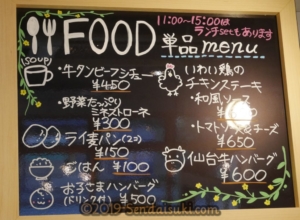 FOOD
11:00～15:00は
ランチsetもあります
単品menu
SOUP
・牛タンビーフシチュー
¥450
・野菜たっぷり
ミネストローネ
¥300
ライ麦パン(2コ)
¥150
ごはん ¥100
お子さまハンバーグ
(ドリンク付) ¥500
いわい鶏の
チキンステーキ
・和風ソース
・トマトソース&チーズ
¥650
仙台牛ハンバーグ
¥600
©2019 Sendaisuki.com